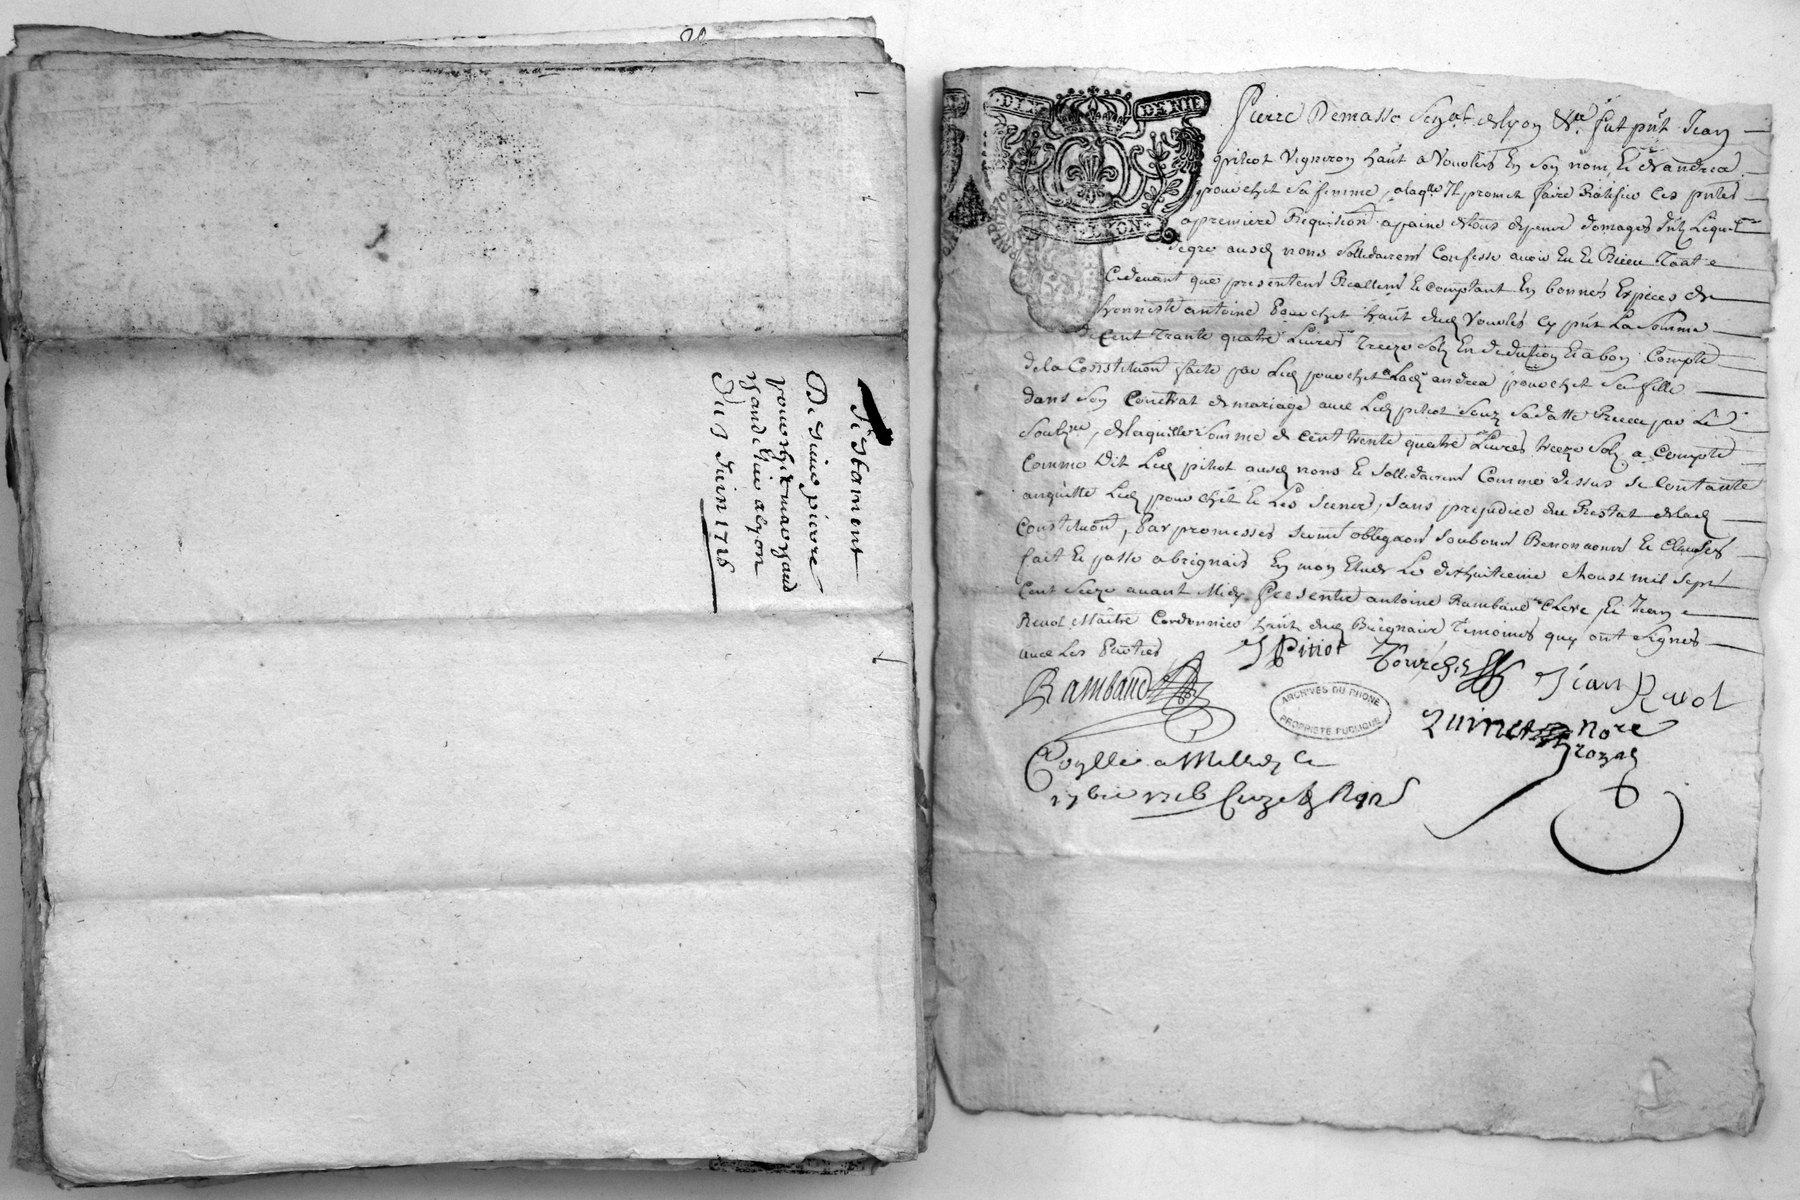 Testament
De Sieur pierre
pourchet marchand
Du 3 Juin 1716
DIX DENIE
LYON
Pierre Demasso Seig.r de lyon &a fut pnt Jean
pitiot Vigneron habt a Vourles En son nom Et de andrea
pourchet sa femme, a laqlle Il promet faire Ratiffier Ces pntes
a premiere Requisition a paine de tous depens domages
solidairemt Confesse avoir Eu Et Receu
Cydevant que presentemt Reallemt Et Comptant En bonnes Espices de
honneste antoine pourchet habt dud Vourles Cy pnt La Somme
de Cent Trante quatre Livres Treeze Solz En deduction Et a bon Compte
de la Constitution faite par Led pourchet a Lad andrea pourchet sa fille
dans Son Contrat de mariage avec Led pitiot Souz sa datte Receu par Le
Soubne, de laquelle Somme de Cent trente quatre Livres treeze Solz a Compte
Comme dit Led pitiot ausd noms Et Sollidairemt Comme dessus se Contante
En quitte Led pourchet Et Les Siens, sans prejudice du Restat de lad
Constitution, Par promesses sermt obligaon Soubmis Renonaons Et Clauses
fait Et passé a brignais En mon Etude Le dixhuitieme Aoust mil Sept
Cent Seize avant Midy Presents antoine Rambaud Clerc Et Jean
Revol Maitre Cordonnier habt dud Brignais Temoins quy ont Signés
avec Les Parties
J Pitiot Pourchet Jean Revol
Rambaud
ARCHIVES DU RHONE
PROPRIETE PUBLIQUE
Quinet Nore
Royal
Conllé a Millery Le
1 7bre 1716